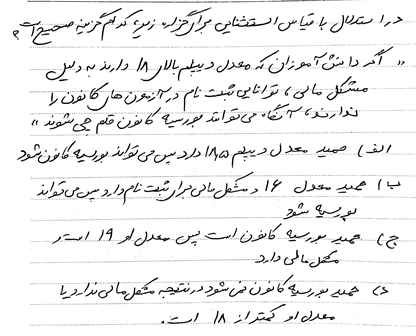 در استدلال با قیاس استثنایی برای گزاره زیر، کدام گزینه صحیح است؟
« اگر دانش آموزان که معدل دیپلم بالای ۱۸ دارند به دلیل
مشکل مالی، توانایی ثبت نام در آزمون های کانون را
ندارند، آنگاه می توانند بورسیه کانون قلم چی شوند »
الف) حمید معدل دیپلم ۱۸٫۵ دارد پس می تواند بورسیه کانون شود
ب) حمید معدل ۱۶ و مشکل مالی برای ثبت نام دارد پس می تواند
بورسیه شود
ج) حمید بورسیه کانون است پس معدل او ۱۹ است و
مشکل مالی دارد
د) حمید بورسیه کانون نمی شود در نتیجه مشکل مالی ندارد یا
معدل او کمتر از ۱۸ است.